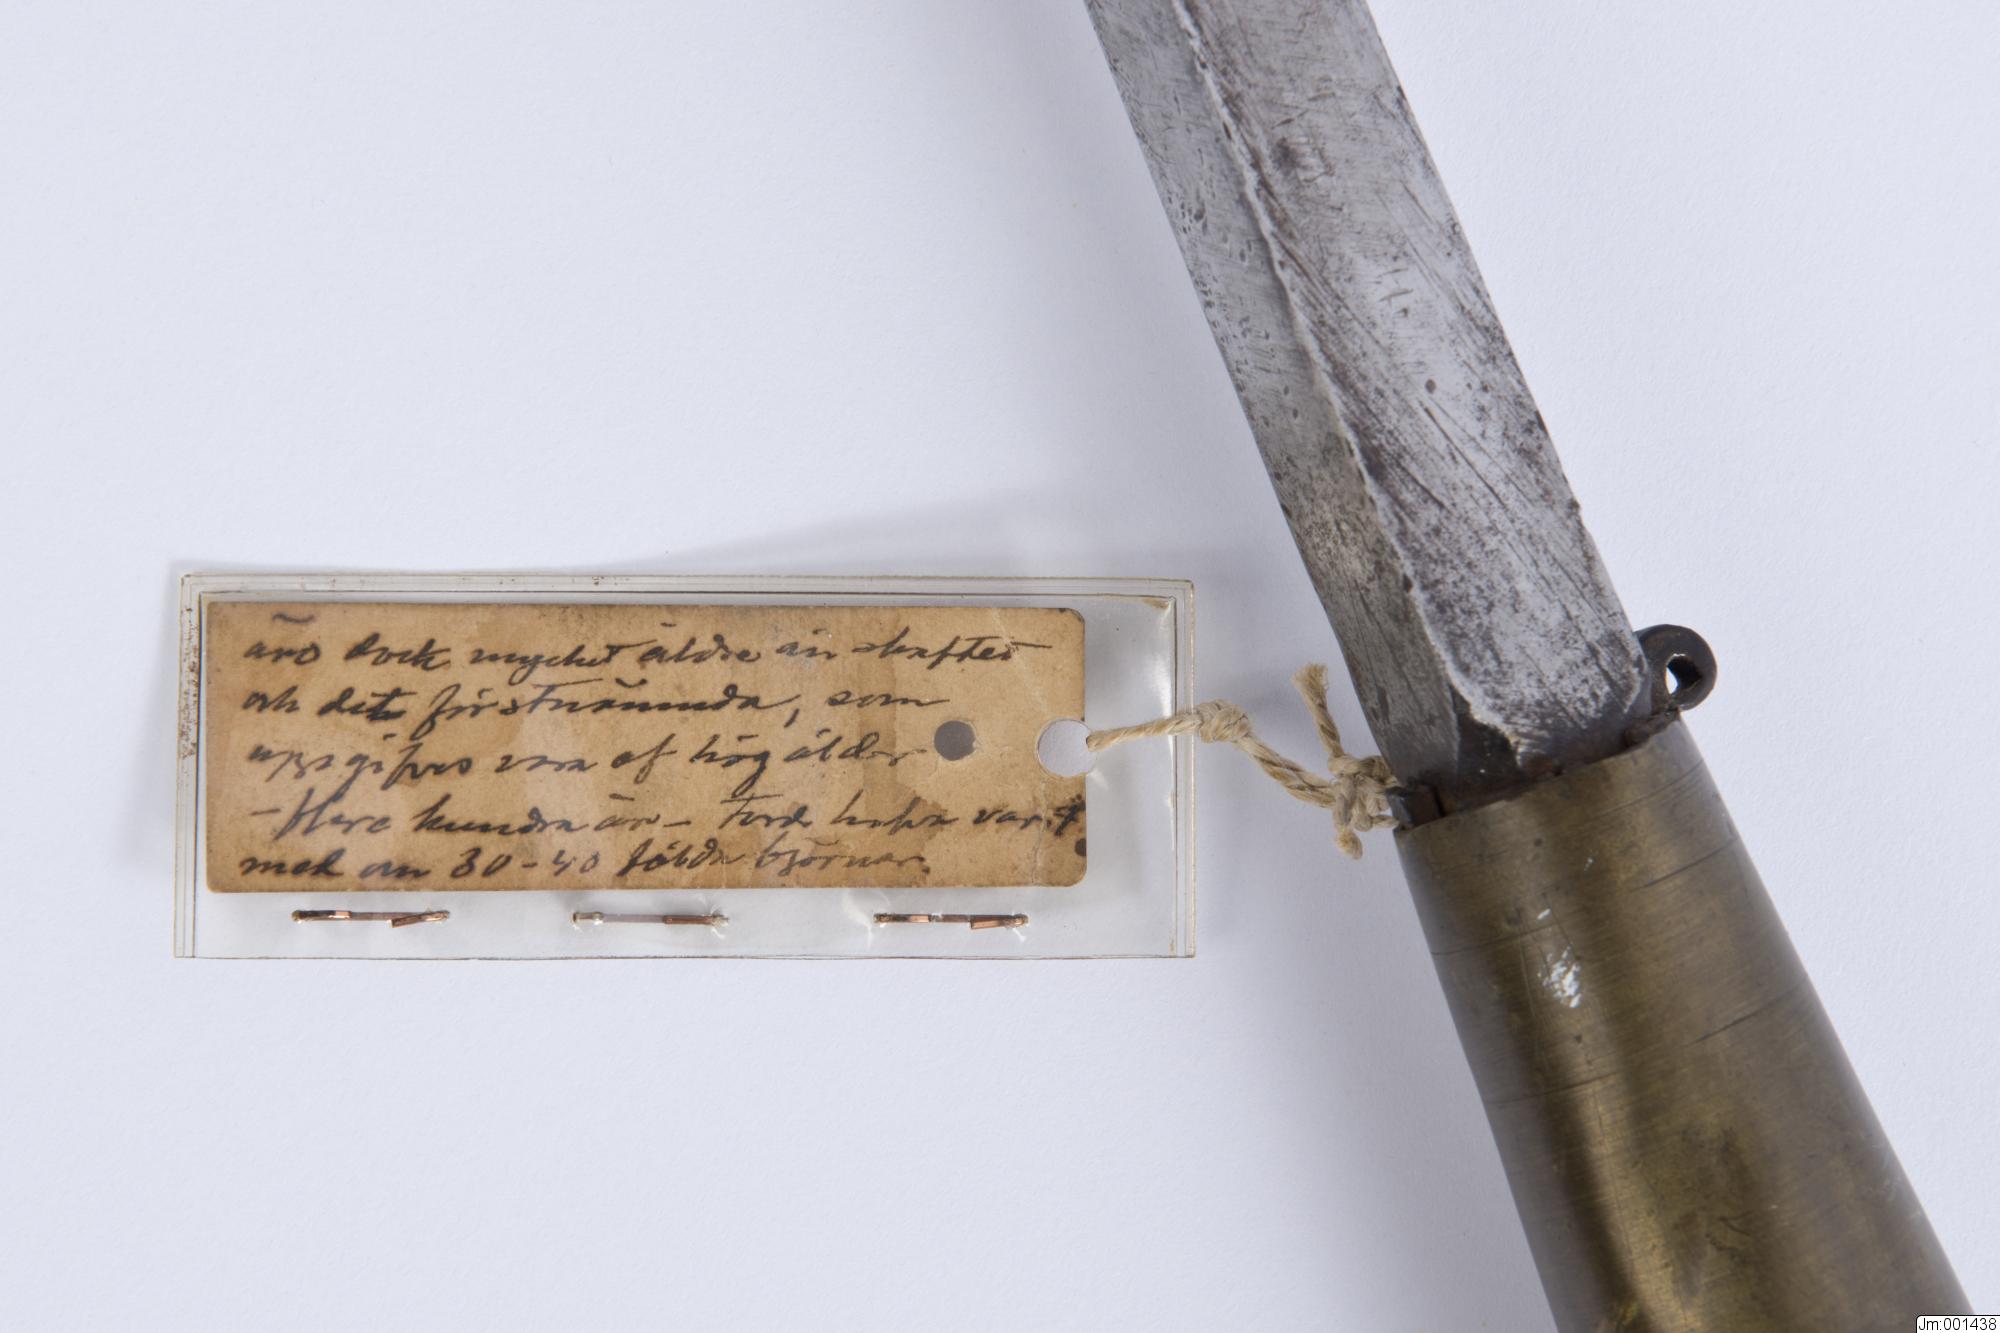 äro dock mycket äldre än skaftet
och det förstnämnda, som
uppgifves vara af hög ålder
- flera hundra år - Torde hafva varit
med om 30-40 fälda björnar.
Jm:001438